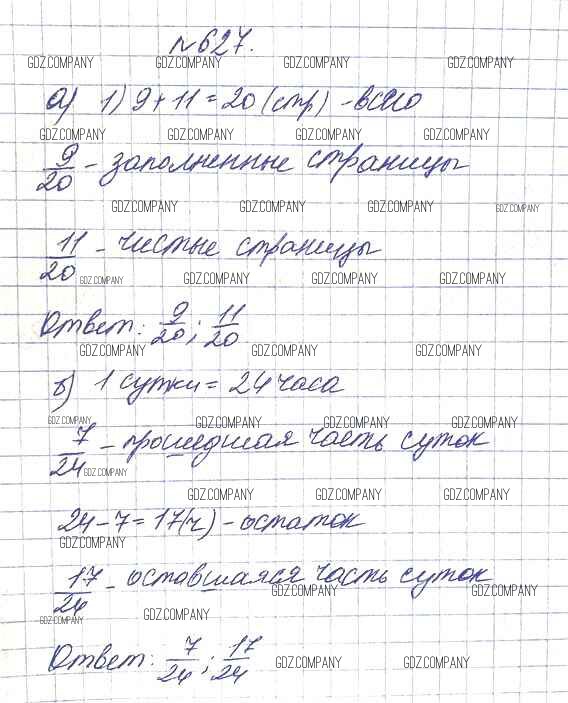 №627.
GDZ.COMPANY GDZ.COMPANY GDZ.COMPANY GDZ.COMPANY
а) 1) 9 + 11 = 20 (стр) - всего
GDZ.COMPANY GDZ.COMPANY GDZ.COMPANY GDZ.COMPANY
9/20 - заполненные страницы
GDZ.COMPANY GDZ.COMPANY GDZ.COMPANY GDZ.COMPANY
11/20 - чистые страницы
GDZ.COMPANY GDZ.COMPANY GDZ.COMPANY GDZ.COMPANY
Ответ: 9/20; 11/20
GDZ.COMPANY GDZ.COMPANY GDZ.COMPANY
б) 1 сутки = 24 часа
GDZ.COMPANY GDZ.COMPANY GDZ.COMPANY GDZ.COMPANY
7/24 - прошедшая часть суток
GDZ.COMPANY
GDZ.COMPANY GDZ.COMPANY GDZ.COMPANY
24 - 7 = 17(ч) - остаток
GDZ.COMPANY
17/24 - оставшаяся часть суток
GDZ.COMPANY GDZ.COMPANY
GDZ.COMPANY GDZ.COMPANY
Ответ: 7/24; 17/24
GDZ.COMPANY GDZ.COMPANY